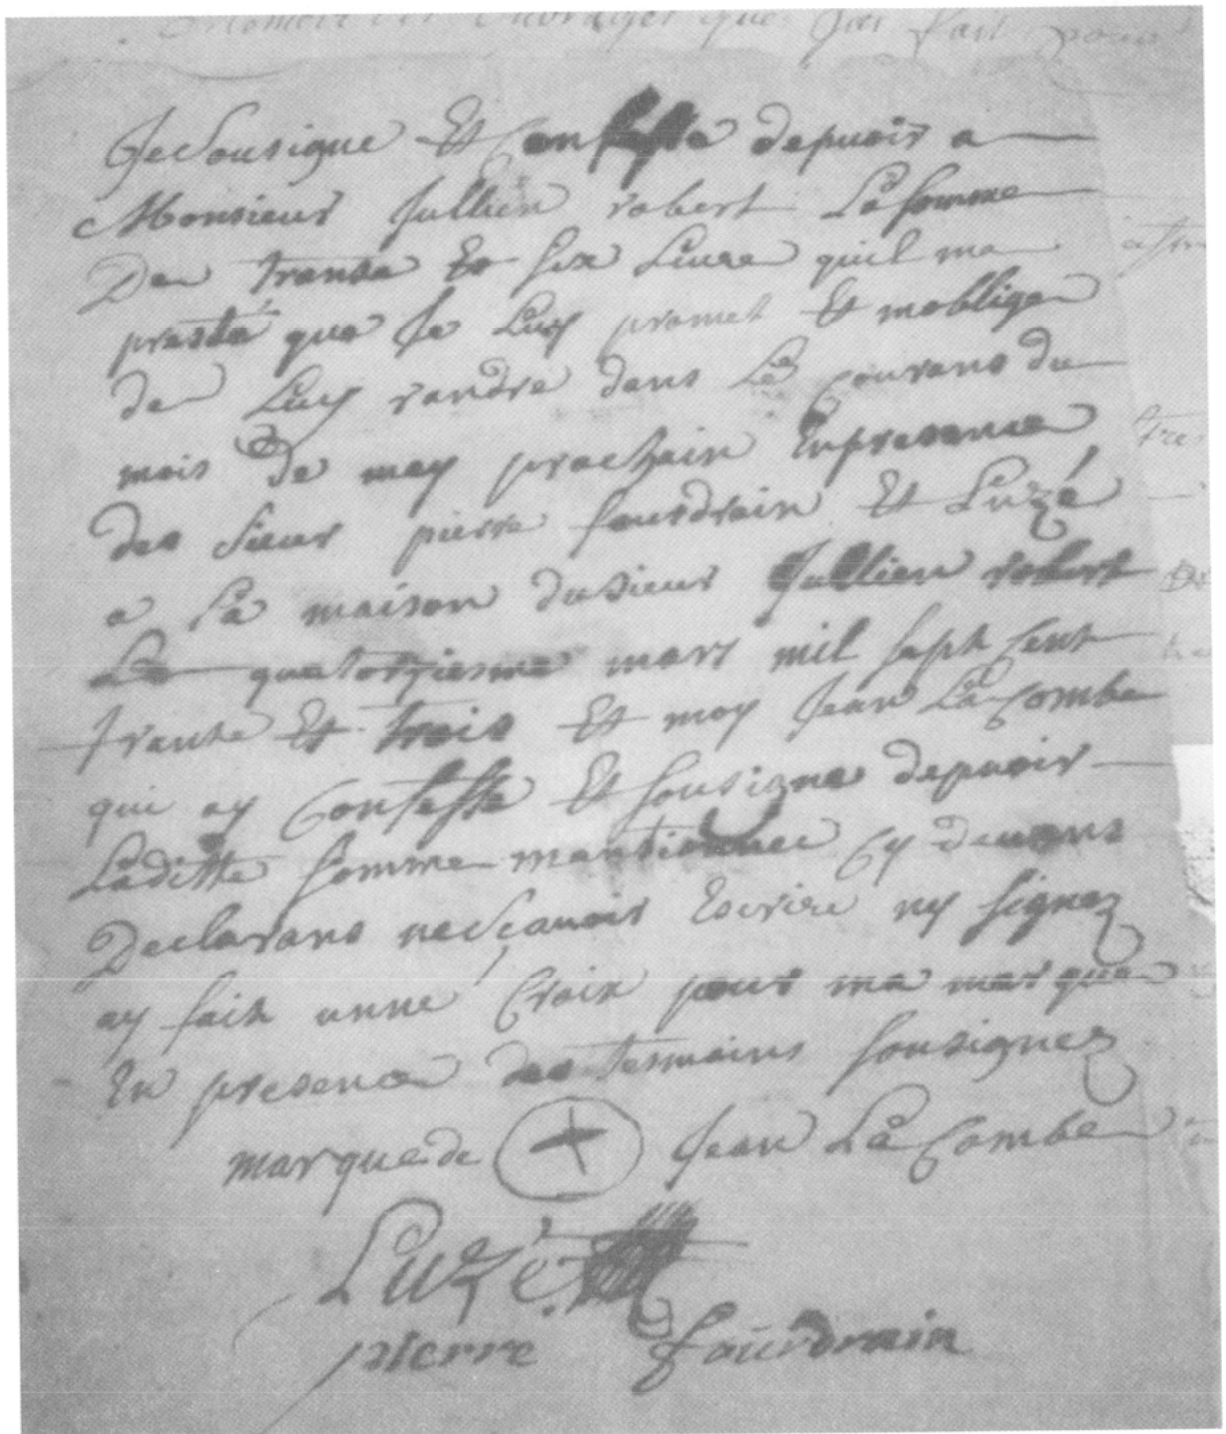 Memoire des Ouvrages que Jay fait pour
Je Sousigne Et Confesse depvoir a
Monsieur Jullien robert La somme
De trante Et six Livre quil ma
presté que Je Luy promet Et moblige
de Luy randre dans Le Courans du
mois De may prochain En presence
des sieur pierre fourdrain Et Luzé
a La maison du sieur Jullien robert
Le quatorziesme mars mil sept Cent
trante Et trois Et moy Jean La Combe
qui ay Confesse Et sousigne depvoir
Laditte somme mantionnee Cy devans
Declarans ne scavoir Escrire ny signez
ay fait unne Croix pour ma marque
En presence des tesmoins sousignez
marque de + Jean La Combe
Luzé
pierre fourdrain